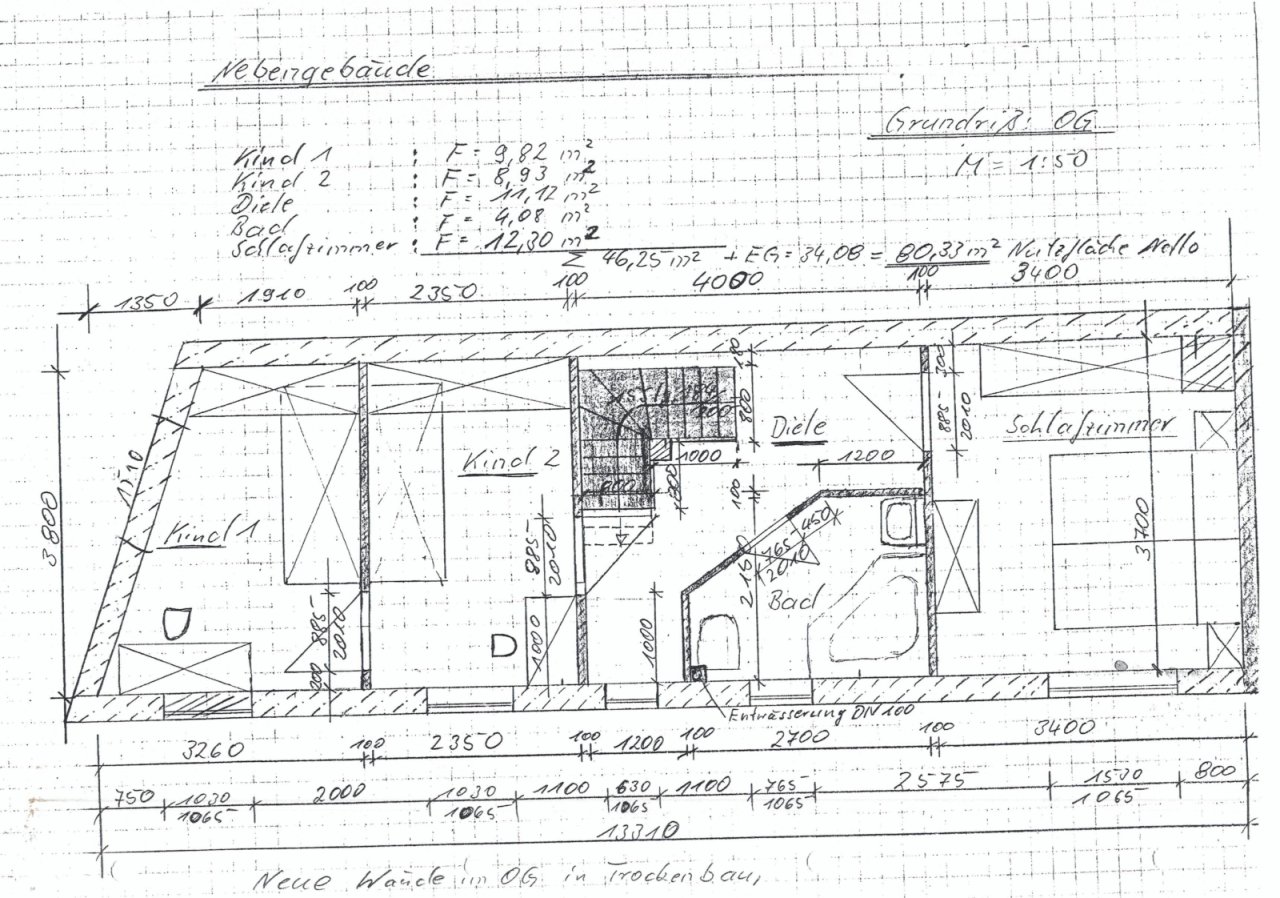 Nebengebäude
Grundriß: OG
M = 1:50
Kind 1 : F = 9,82 m²
Kind 2 : F = 8,93 m²
Diele : F = 11,12 m²
Bad : F = 4,08 m²
Schlafzimmer : F = 12,30 m²
Σ 46,25 m² + EG = 34,08 = 80,33 m² Nutzfläche Netto
1350 1910 100 2350 100 4000 100 3400
3800
1510
Kind 1
200 885 2010
Kind 2
885 2010
1000
800
1000
800
180
800
100
1000
Diele
1200
300
885 2010
Schlafzimmer
3700
450
765 2010
2150
Bad
Entwässerung DN 100
3260 100 2350 100 1200 100 2700 100 3400
750 1030 2000 1030 1100 630 1100 765 2575 1530 800
1065 1065 1065 1065 1065
13310
Neue Wände im OG in Trockenbau,